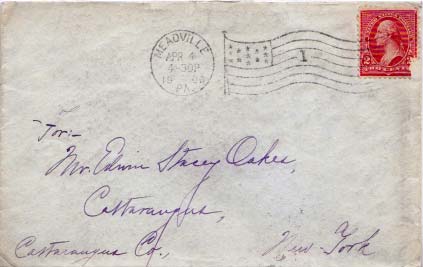 MEADVILLE
APR 4
4-30P
PA.
1
2 2
To:-
Mr. Edwin Stacey Oakes,
Cattaraugus,
Cattaraugus Co.,
New-York